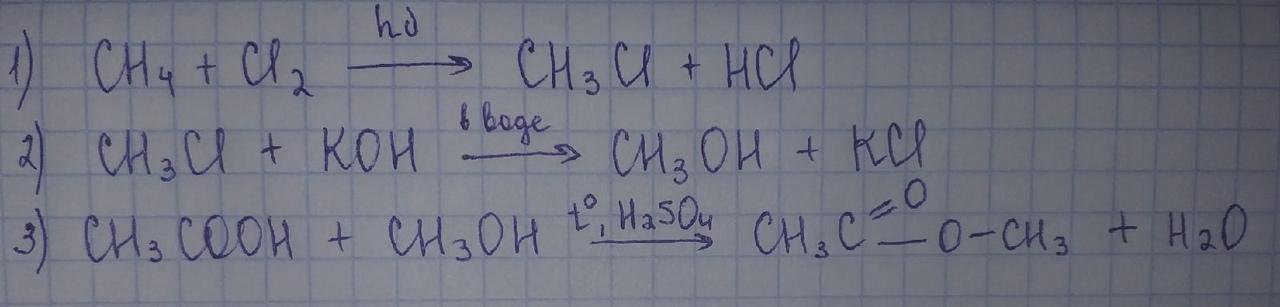 1) CH₄ + Cl₂ —hν→ CH₃Cl + HCl
2) CH₃Cl + KOH —в воде→ CH₃OH + KCl
3) CH₃COOH + CH₃OH —t°, H₂SO₄→ CH₃C(=O)—O—CH₃ + H₂O